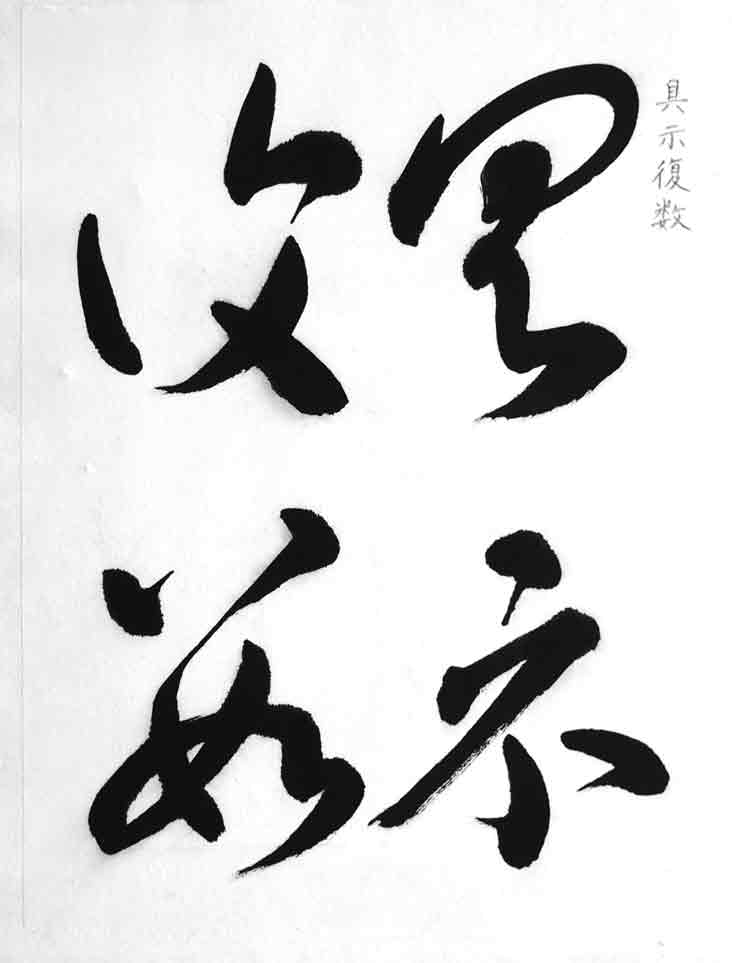 具示
復数
具示復数